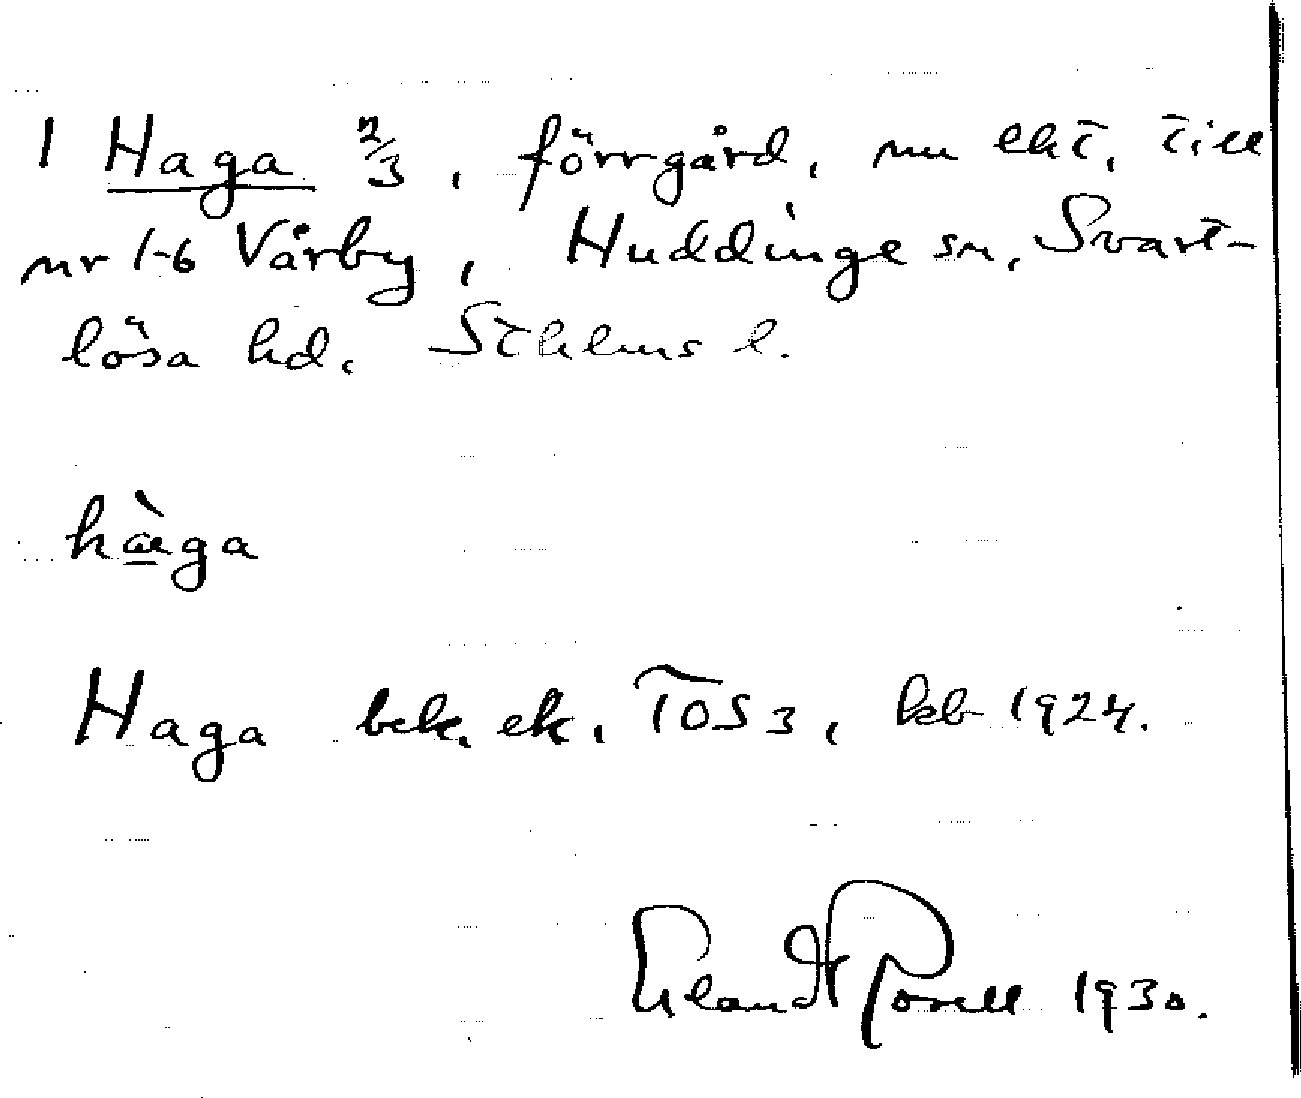 1 Haga 2/3, förrgård, nu lht. till
nr 1-6 Vårby, Huddinge sn, Svart-
lösa hd. Sthlms l.
hàga
Haga bek. ek. TOS 3, kb 1924.
Erland Rosell 1930.